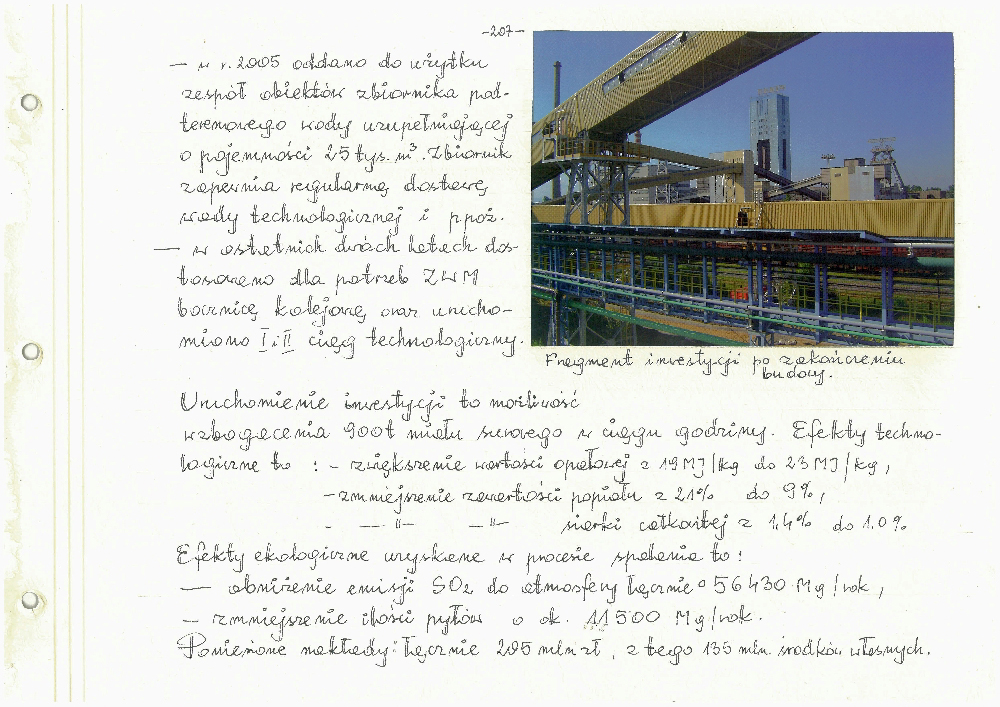 -207-
— w r. 2005 oddano do użytku
zespół obiektów zbiornika pod-
terenowego wody uzupełniającej
o pojemności 25 tys. m³. Zbiornik
zapewnia regularną dostawę
wody technologicznej i ppoż.
— w ostatnich dwóch latach dos-
tosowano dla potrzeb ZWM
bocznicę kolejową oraz urucho-
miono I i II ciąg technologiczny.
Fragment inwestycji po zakończeniu
budowy.
Uruchomienie inwestycji to możliwość
wzbogacenia 900t miału surowego w ciągu godziny. Efekty techno-
logiczne to : - zwiększenie wartości opałowej z 19 MJ/kg do 23 MJ/kg,
- zmniejszenie zawartości popiołu z 21% do 9%,
- —"— —"— siarki całkowitej z 1,4% do 1,0%
Efekty ekologiczne uzyskane w procesie spalania to :
— obniżenie emisji SO2 do atmosfery łącznie o 56430 Mg/rok,
— zmniejszenie ilości pyłów o ok. 11500 Mg/rok.
Poniesione nakłady: łącznie 205 mln zł, z tego 135 mln. środków własnych.